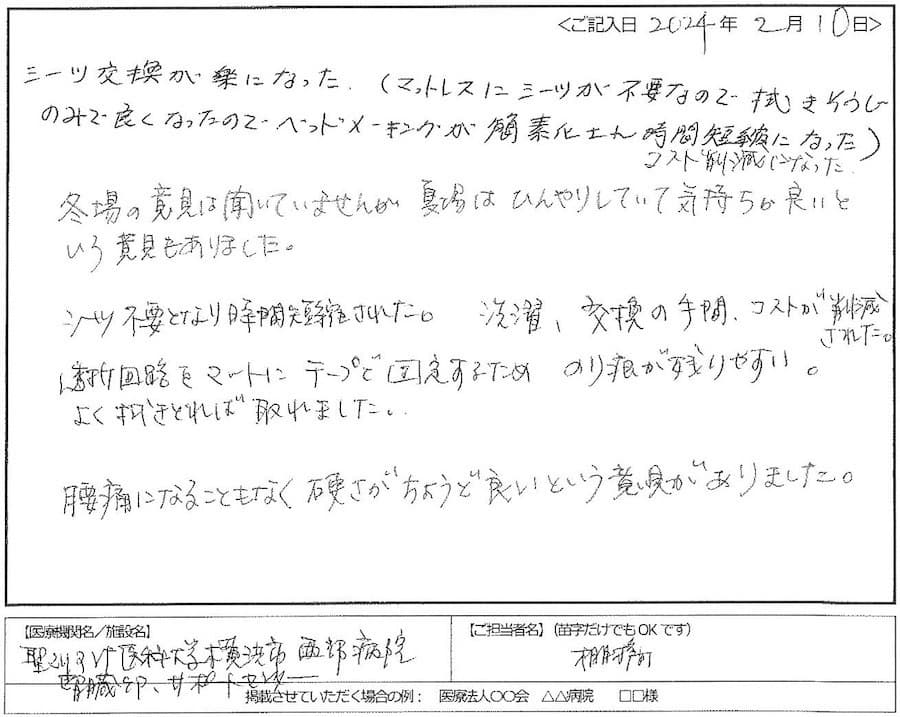 <ご記入日 2024年 2月10日>
シーツ交換が楽になった. (マットレスにシーツが不要なので拭きそうじ
のみで良くなったのでベッドメーキングが簡素化され時間短縮になった)
コスト削減になった.
冬場の意見は聞いていませんが 夏場は ひんやりしていて気持ちが良いと
いう意見もありました。
シーツ不要となり時間短縮された。 洗濯、交換の手間、コストが削減
された。
透析回路をマートに テープで固定するため のり痕が残りやすい。
よく拭きとれば取れました.
腰痛になることもなく硬さがちょうど良いという意見がありました。
【医療機関名/施設名】
聖マリアンナ医科大学横浜市西部病院
腎臓 サポートセンター
【ご担当者名】(苗字だけでもOKです)
掲載させていただく場合の例: 医療法人〇〇会 △△病院 □□様